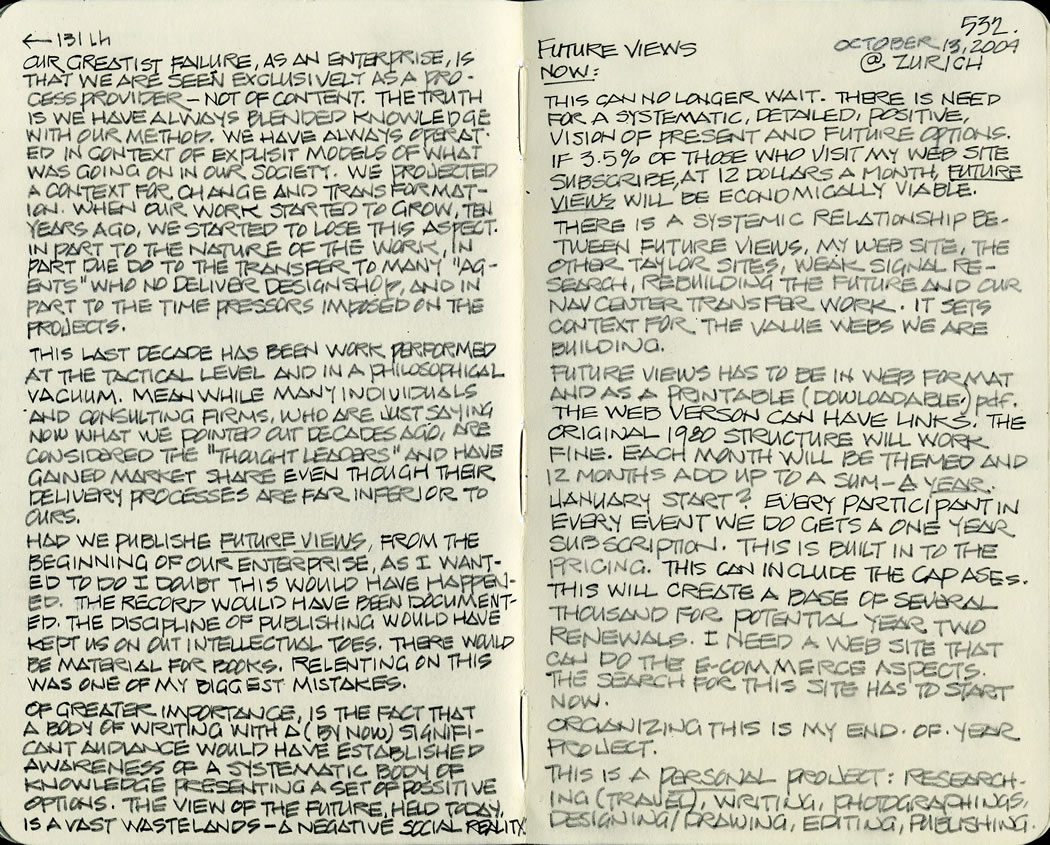 ← 131 Lh
OUR GREATIST FAILURE, AS AN ENTERPRISE, IS
THAT WE ARE SEEN EXCLUSIVELY AS A PRO-
CESS PROVIDER — NOT OF CONTENT. THE TRUTH
IS WE HAVE ALWAYS BLENDED KNOWLEDGE
WITH OUR METHOD. WE HAVE ALWAYS OPERAT-
ED IN CONTEXT OF EXPLISIT MODELS OF WHAT
WAS GOING ON IN OUR SOCIETY. WE PROJECTED
A CONTEXT FOR CHANGE AND TRANSFORMAT-
ION. WHEN OUR WORK STARTED TO GROW, TEN
YEARS AGO, WE STARTED TO LOSE THIS ASPECT.
IN PART TO THE NATURE OF THE WORK, IN
PART DUE DO TO THE TRANSFER TO MANY "AG-
ENTS" WHO NO DELIVER DESIGNSHOP, AND IN
PART TO THE TIME PRESSORS IMPOSED ON THE
PROJECTS.
THIS LAST DECADE HAS BEEN WORK PERFORMED
AT THE TACTICAL LEVEL AND IN A PHILOSOPHICAL
VACUUM. MEANWHILE MANY INDIVIDUALS
AND CONSULTING FIRMS, WHO ARE JUST SAYING
NOW WHAT WE POINTED OUT DECADES AGO, ARE
CONSIDERED THE "THOUGHT LEADERS" AND HAVE
GAINED MARKET SHARE EVEN THOUGH THEIR
DELIVERY PROCESSES ARE FAR INFERIOR TO
OURS.
HAD WE PUBLISHE FUTURE VIEWS, FROM THE
BEGINNING OF OUR ENTERPRISE, AS I WANT-
ED TO DO I DOUBT THIS WOULD HAVE HAPPEN-
ED. THE RECORD WOULD HAVE BEEN DOCUMENT-
ED. THE DISCIPLINE OF PUBLISHING WOULD HAVE
KEPT US ON OUT INTELLECTUAL TOES. THERE WOULD
BE MATERIAL FOR BOOKS. RELENTING ON THIS
WAS ONE OF MY BIGGEST MISTAKES.
OF GREATER IMPORTANCE, IS THE FACT THAT
A BODY OF WRITING WITH A (BY NOW) SIGNIFI-
CANT AUDIANCE WOULD HAVE ESTABLISHED
AWARENESS OF A SYSTEMATIC BODY OF
KNOWLEDGE PRESENTING A SET OF POSSITIVE
OPTIONS. THE VIEW OF THE FUTURE, HELD TODAY,
IS A VAST WASTELANDS — A NEGATIVE SOCIAL REALITY.
532.
OCTOBER 13, 2004
@ ZURICH
FUTURE VIEWS
NOW:
THIS CAN NO LONGER WAIT. THERE IS NEED
FOR A SYSTEMATIC, DETAILED, POSITIVE,
VISION OF PRESENT AND FUTURE OPTIONS.
IF 3.5% OF THOSE WHO VISIT MY WEB SITE
SUBSCRIBE, AT 12 DOLLARS A MONTH, FUTURE
VIEWS WILL BE ECONOMICALLY VIABLE.
THERE IS A SYSTEMIC RELATIONSHIP BE-
TWEEN FUTURE VIEWS, MY WEB SITE, THE
OTHER TAYLOR SITES, WEAK SIGNAL RE-
SEARCH, REBUILDING THE FUTURE AND OUR
NAVCENTER TRANSFER WORK. IT SETS
CONTEXT FOR THE VALUE WEBS WE ARE
BUILDING.
FUTURE VIEWS HAS TO BE IN WEB FORMAT
AND AS A PRINTABLE (DOWLOADABLE) pdf.
THE WEB VERSON CAN HAVE LINKS. THE
ORIGINAL 1980 STRUCTURE WILL WORK
FINE. EACH MONTH WILL BE THEMED AND
12 MONTHS ADD UP TO A SUM — A YEAR.
JANUARY START? EVERY PARTICIPANT IN
EVERY EVENT WE DO GETS A ONE YEAR
SUBSCRIPTION. THIS IS BUILT IN TO THE
PRICING. THIS CAN INCLUDE THE CAP ASES.
THIS WILL CREATE A BASE OF SEVERAL
THOUSAND FOR POTENTIAL YEAR TWO
RENEWALS. I NEED A WEB SITE THAT
CAN DO THE E-COMMERCE ASPECTS.
THE SEARCH FOR THIS SITE HAS TO START
NOW.
ORGANIZING THIS IS MY END-OF-YEAR
PROJECT.
THIS IS A PERSONAL PROJECT: RESEARCH-
ING (TRAVEL), WRITING, PHOTOGRAPHINGS,
DESIGNING/DRAWING, EDITING, PUBLISHING.